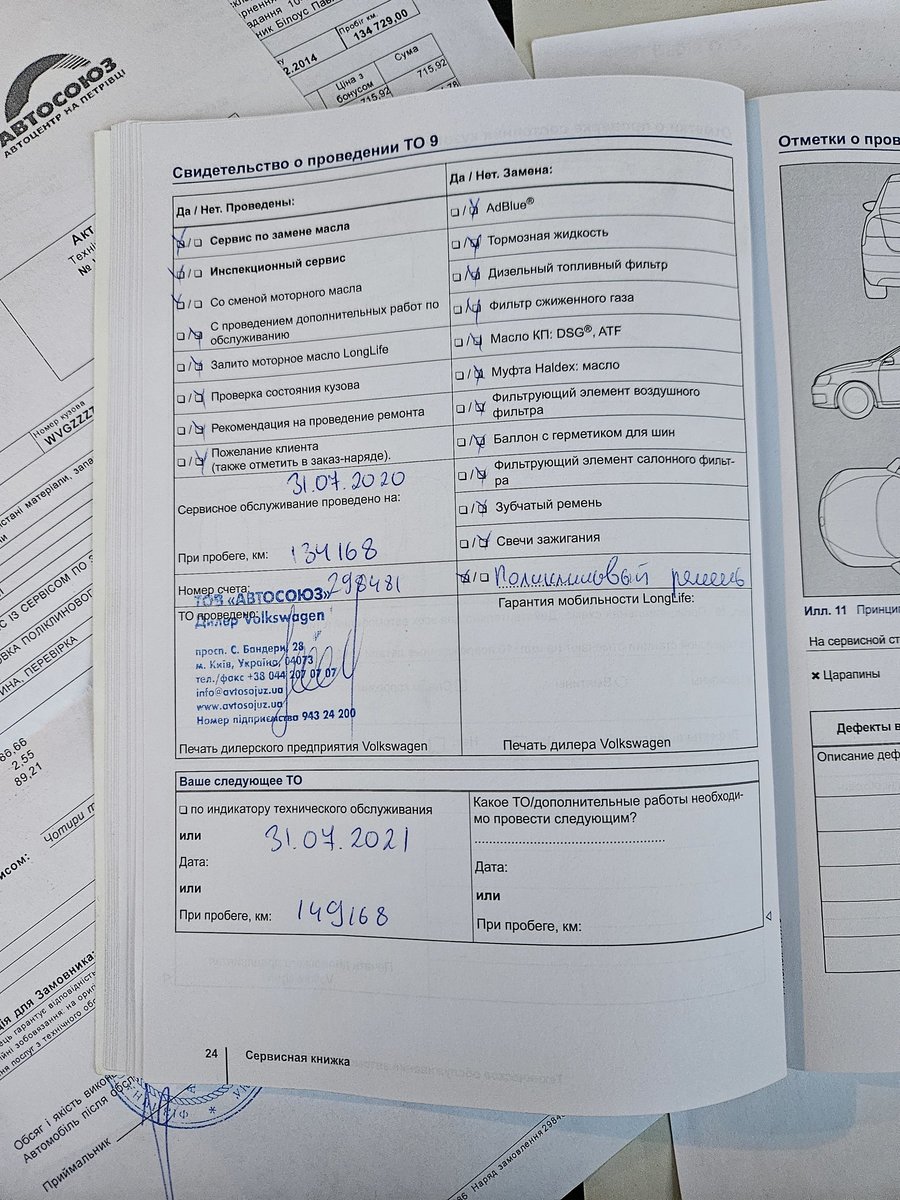 АВТОСОЮЗ
АВТОЦЕНТР НА ПЕТРІВЦІ
ник Білоус
Пробіг км.
134 729,00
2.2014
Ціна з бонусом
Сума
715,92
715,92
Номер кузова
WVGZZZ
Свидетельство о проведении ТО 9
Да / Нет. Проведены:
❏/❏ Сервис по замене масла
❏/❏ Инспекционный сервис
❏/❏ Со сменой моторного масла
❏/❏ С проведением дополнительных работ по
обслуживанию
❏/❏ Залито моторное масло LongLife
❏/❏ Проверка состояния кузова
❏/❏ Рекомендация на проведение ремонта
❏/❏ Пожелание клиента
(также отметить в заказ-наряде).
31.07.2020
Сервисное обслуживание проведено на:
При пробеге, км: 134168
Номер счета: 298481
ТО проведено:
ТОВ «АВТОСОЮЗ»
Дилер Volkswagen
просп. С. Бандери, 28
м. Київ, Україна, 04073
тел./факс +38 044 207 07 07
info@avtosojuz.ua
www.avtosojuz.ua
Номер підприємства 943 24 200
Печать дилерского предприятия Volkswagen
Да / Нет. Замена:
❏/❏ AdBlue®
❏/❏ Тормозная жидкость
❏/❏ Дизельный топливный фильтр
❏/❏ Фильтр сжиженного газа
❏/❏ Масло КП: DSG®, ATF
❏/❏ Муфта Haldex: масло
❏/❏ Фильтрующий элемент воздушного
фильтра
❏/❏ Баллон с герметиком для шин
❏/❏ Фильтрующий элемент салонного фильт-
ра
❏/❏ Зубчатый ремень
❏/❏ Свечи зажигания
❏/❏ Поликлиновый ремень
Гарантия мобильности LongLife:
Печать дилера Volkswagen
Ваше следующее ТО
❏ по индикатору технического обслуживания
или
31.07.2021
Дата:
или
При пробеге, км: 149168
Какое ТО/дополнительные работы необходи-
мо провести следующим?
Дата:
или
При пробеге, км:
24
Сервисная книжка
Отметки о пров
Илл. 11 Принци
На сервисной ст
✖ Царапины
Дефекты в
Описание деф
66,66
2,55
89,21
Чотири т
для Замовника
Обсяг і якість викон
Автомобіль після обсл
Приймальник
Наряд замовлення 2984